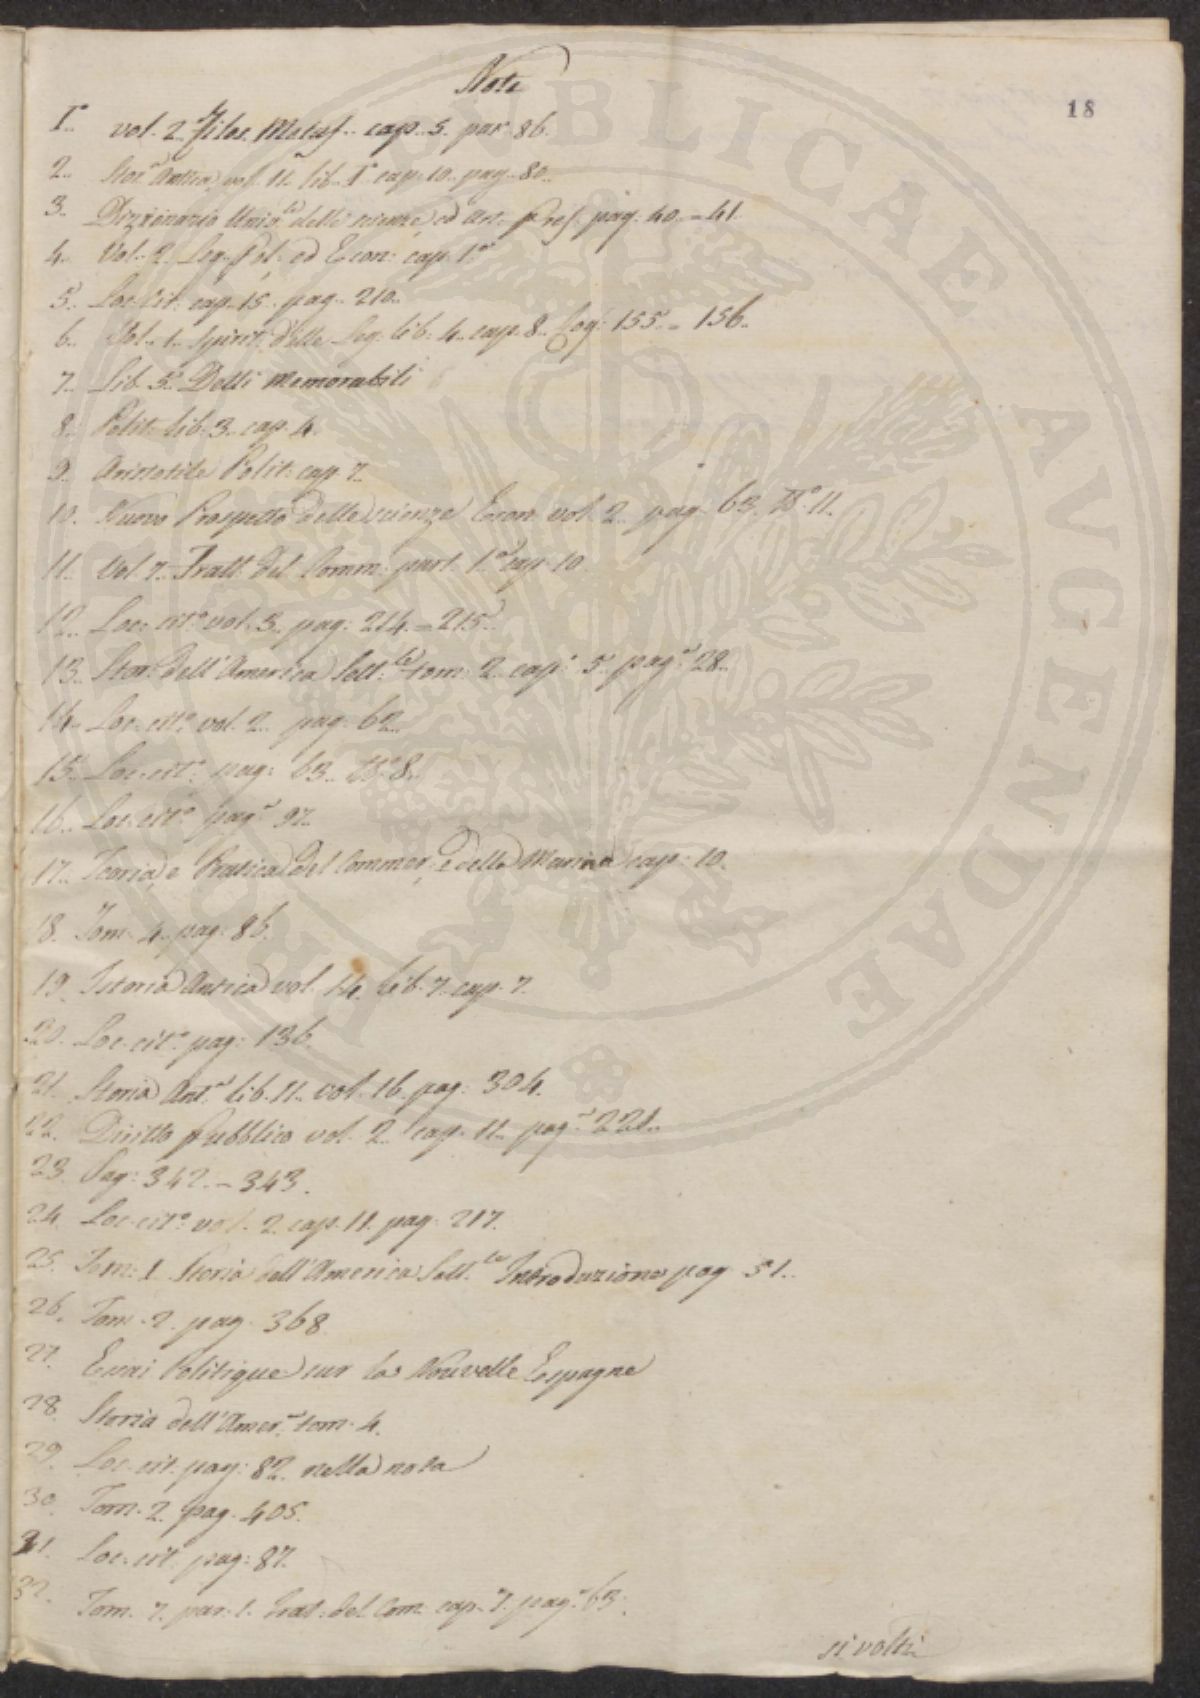 Note
18
1.° vol. 2. Filos. Metaf.. cap.. 5. par. 86.
2.. Stor.ª Antica vol. 11. lib. I.° cap. 10.. pag.. 80..
3.. Dizionario Univ.le delle scienze ed Art. Pref. pag. 40.. = 41.
4.. Vol.. 2. Leg. Pol. ed Econ: cap. 1.°
5.. Loc. Cit: cap. 15. pag.. 210..
6.. Vol.. 1.. Spirit. delle Leg: lib: 4.. cap. 8.. Pag: 155.. = 156..
7.. Lib. 5.. Detti Memorabili
8.. Polit. lib. 3.. cap. 4.
9.. Aristotile Polit: cap. 7..
10.. Nuovo Prospetto delle scienze Econ. vol. 2.. pag. 63. N.° 11.
11.. Vol. 7.. Tratt. del Comm: part. 1.ª cap. 10.
12.. Loc: cit.° vol. 3.. pag: 214.. = 215..
13.. Stor. dell'America Sett.le tom: 2.. cap: 5.. pag.ª 28..
14.. Loc: cit.° vol. 2.. pag: 62..
15.. Loc: cit.° pag: 63.. N.° 8..
16.. Loc: cit.° pag.ª 97..
17.. Teoria, e Pratica del Commer: e della Marina cap: 10.
18. Tom. 4.. pag: 86.
19. Istoria Antica vol. 14. lib. 7. cap. 7.
20. Loc. cit.° pag: 136.
21. Storia Ant.ª lib. 11.. vol. 16. pag: 304.
22. Diritto Pubblico vol. 2.. cap. 11.. pag.ª 221..
23. Pag: 342. = 343.
24. Loc. cit.° vol. 2. cap. 11. pag. 217.
25. Tom: 1. Storia dell'America Sett.le Introduzione pag. 51..
26. Tom. 2. pag. 368.
27. Essai Politique sur la Nouvelle Espagne
28. Storia dell'Amer.ª tom. 4.
29. Loc. cit. pag: 82. nella nota
30. Tom. 2. pag. 405.
31. Loc. cit. pag: 87.
32. Tom. 7. par. 1. Trat. del Com. cap. 7. pag.ª 63.
si volti
PUBLICAE AVGENDAE